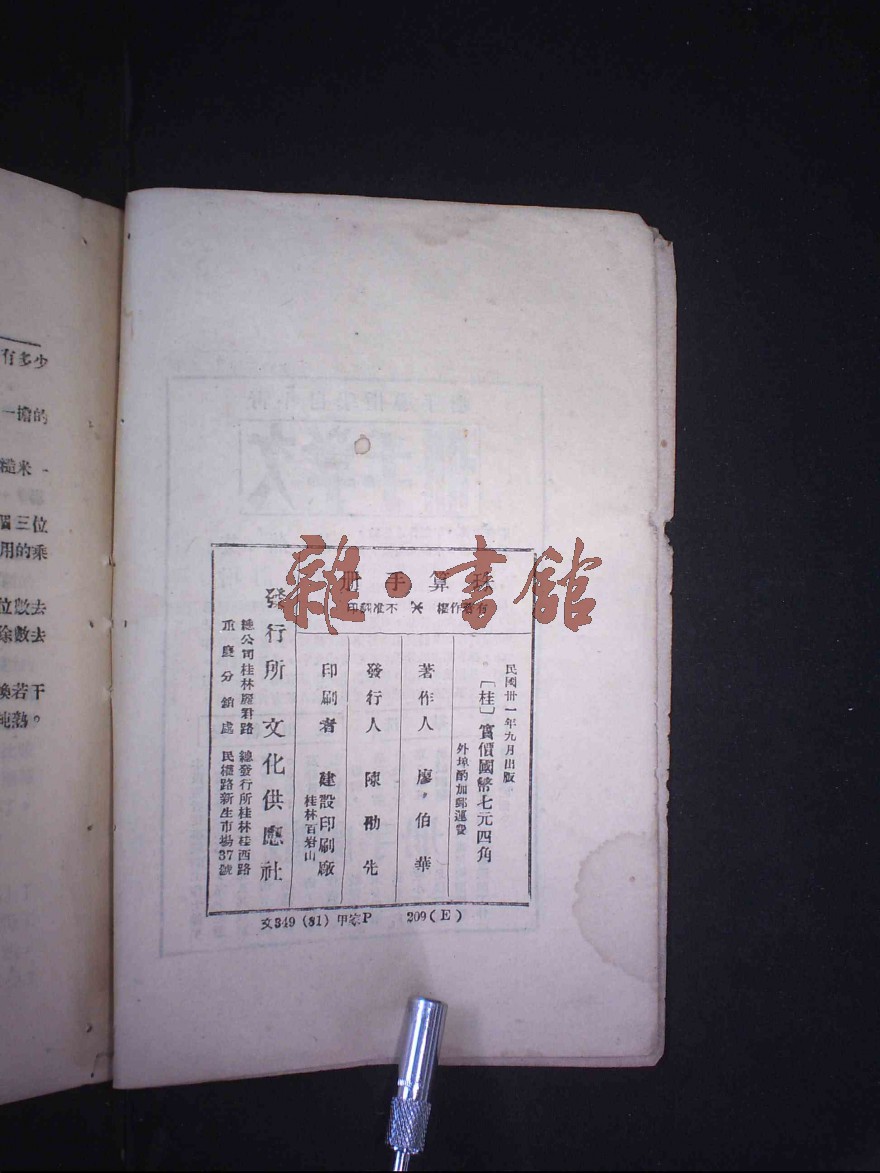 珠算手册
有著作權 不准翻印
民國卅一年九月出版
〔桂〕實價國幣七元四角
外埠酌加郵運費
著作人 廖伯華
發行人 陳劭先
印刷者 建設印刷廠
桂林百岩山
發行所 文化供應社
總公司桂林麗君路 總發行所桂林桂西路
重慶分銷處 民權路新生市場37號
文349(31)甲 P 209(E)
雜·書館
有多少
一擔的
糙米
三位
用的乘
位數去
除數去
換若干
純熟。